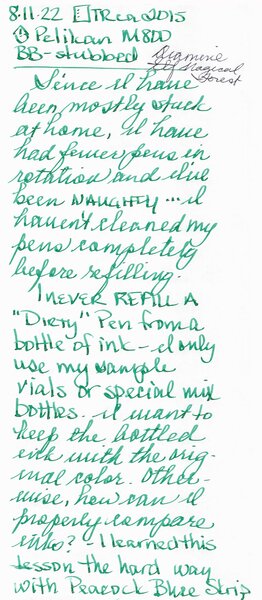 8.11.22 TRca 2015
Pelikan M800
BB-stubbed Diamine
Magical
Forest
Since I have
been mostly stuck
at home, I have
had fewer pens in
rotation and I've
been NAUGHTY... I
haven't cleaned my
pens completely
before refilling.
I NEVER REFILL A
"Dirty" Pen from a
bottle of ink - I only
use my sample
vials or special mix
bottles. I want to
keep the bottled
ink with the orig-
inal color. Other-
wise, how can I
properly compare
inks? - I learned this
lesson the hard way
with Peacock Blue Skrip